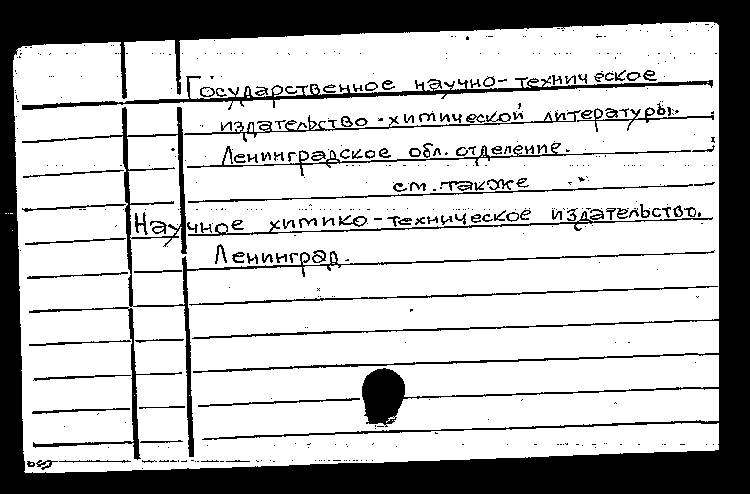 Государственное научно-техническое
издательство химической литературы.
Ленинградское обл. отделение.
см. также
Научное химико-техническое издательство.
Ленинград.